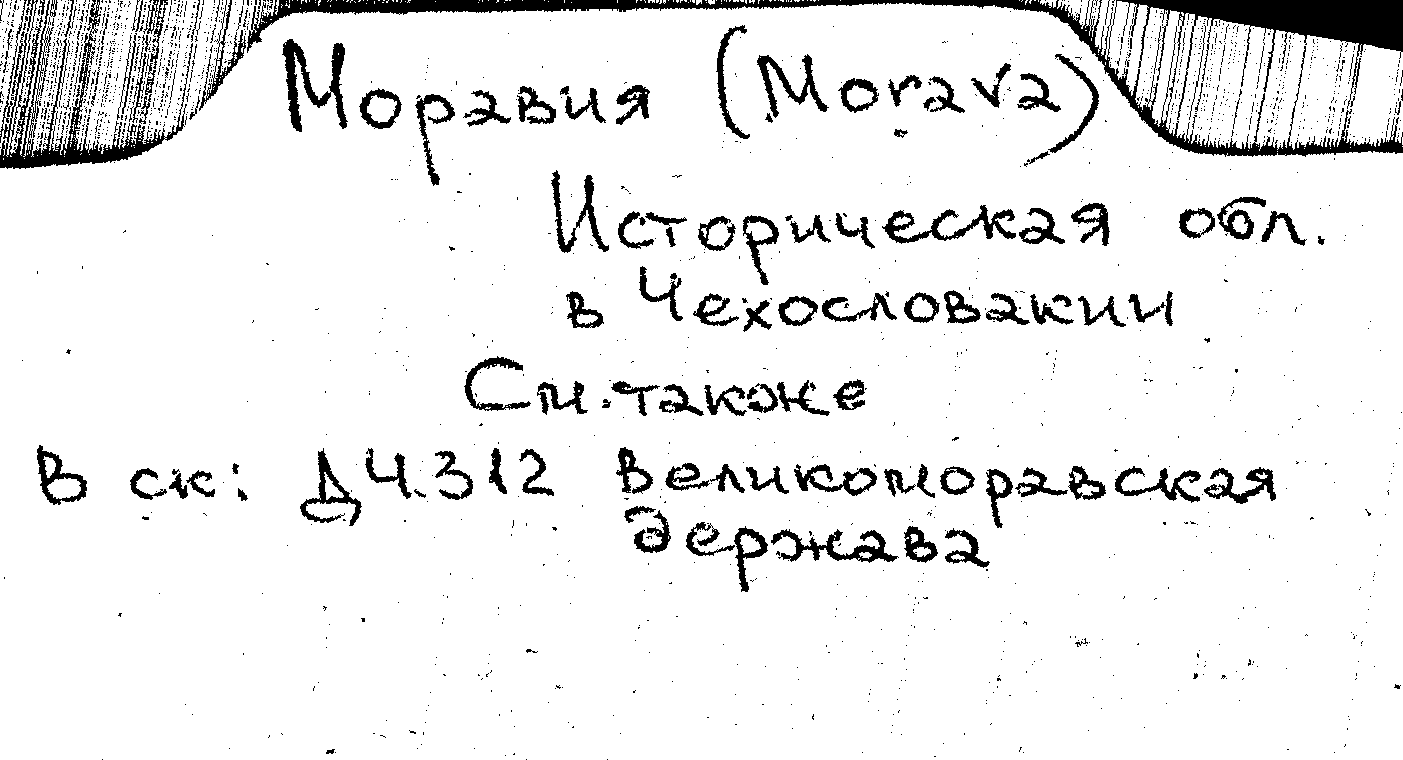 Моравия (Morava)
Историческая обл.
в Чехословакии
См. также
В ск: Д4.312 Великоморавская
держава